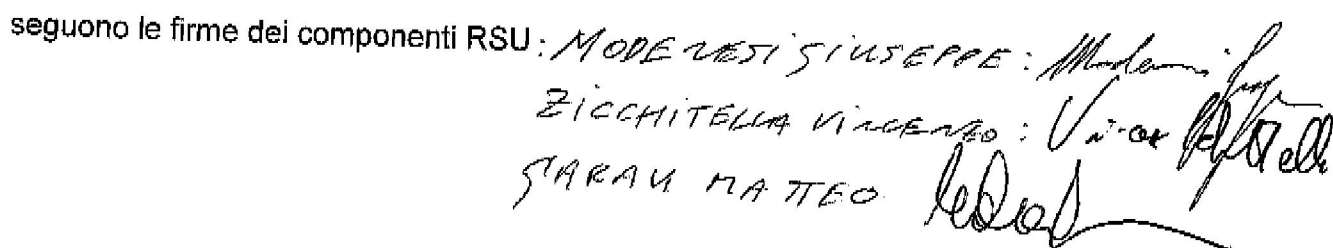 seguono le firme dei componenti RSU: MODENESI GIUSEPPE:
ZICCHITELLA VINCENZO:
GARAU MATTEO